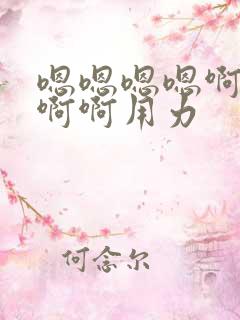 嗯嗯嗯嗯啊
啊啊用力
何念尔